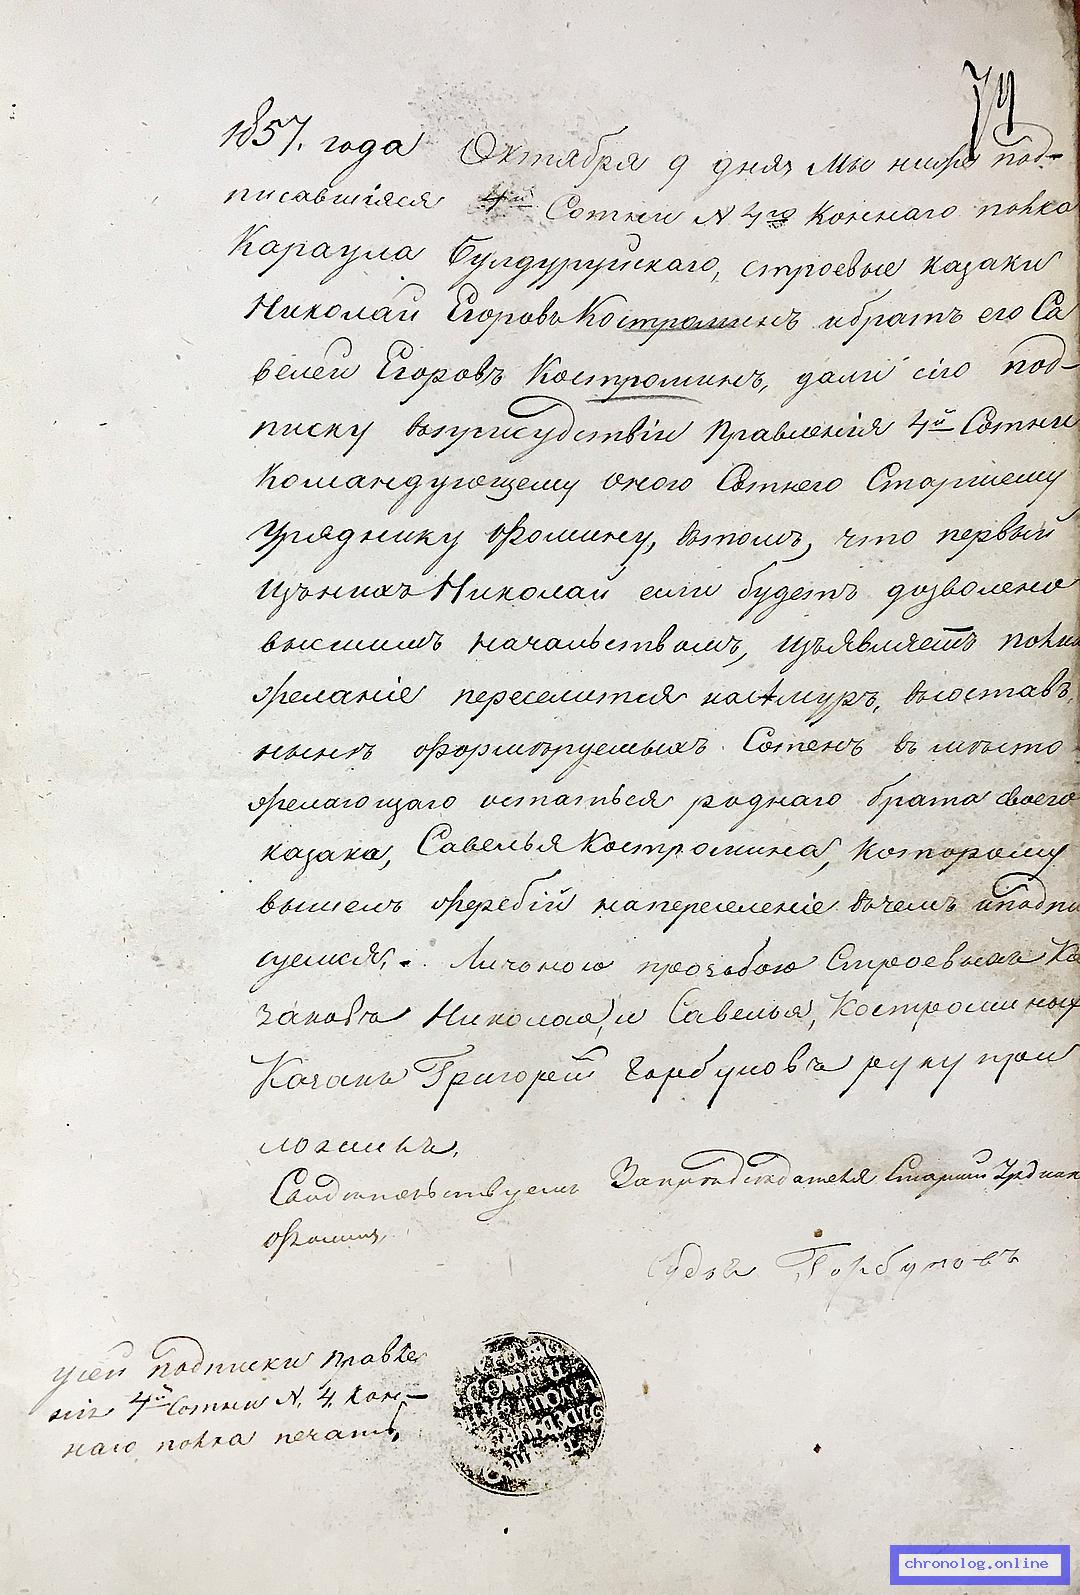 74
1857. года Октября 9 дня Мы ниже под-
писавшiяся 4й Сотни N 4го Коннаго полка
Караула Булдуруйскаго, строевые казаки
Николай Егоровъ Костроминъ ибратъ его Са
велей Егоровъ Костроминъ, дали сiю под-
писку вприсудствiи Правленiя 4й Сотни
Командующему оного Сотнею Старшему
Уряднику Фомину, втомъ, что первый
изънихъ Николай если будетъ дозволено
высшимъ начальствомъ, изъявляетъ полное
желанiе переселится наАмуръ, всоставъ
нынѣ формируемыхъ Сотенъ въ мѣсто
желающаго остаться роднаго брата своего
казака, Савелья Костромина, которому
вышелъ жеребiй напереселенiе вчемъ иподпи
суемся. Личною прозьбою Строевыхъ Ка
заковъ Николая, и Савелья, Костроминых
Казакъ Григорей Горбуновъ руку при
ложилъ.
Свидетельствуемъ Запредседателя Старший Урядник
Фоминъ,
Судья Горбуновъ
усей подписки Правле
нiя 4й Сотни N. 4. Кон-
наго полка печать,
СОТНИ
chronolog.online